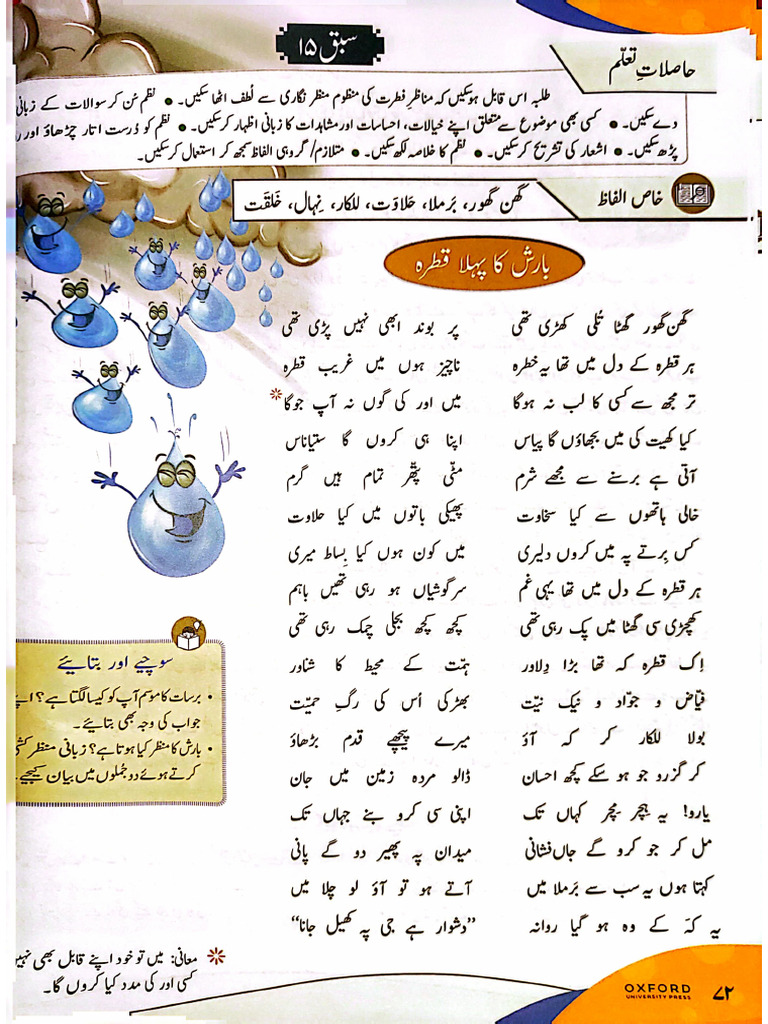 سبق ۱۵
حاصلاتِ تعلّم
طلبہ اس قابل ہوسکیں کہ مناظرِ فطرت کی منظوم منظر نگاری سے لُطف اٹھا سکیں۔ • نظم سُن کر سوالات کے زبانی
دے سکیں۔ • کسی بھی موضوع سے متعلق اپنے خیالات، احساسات اور مشاہدات کا زبانی اظہار کرسکیں۔ • نظم کو دُرست اتار چڑھاؤ اور
پڑھ سکیں۔ • اشعار کی تشریح کرسکیں۔ • نظم کا خلاصہ لکھ سکیں۔ • متلازم/ گروہی الفاظ سمجھ کر استعمال کرسکیں۔
خاص الفاظ
گھن گھور، بَرملا، حَلاوَت، للکار، نِہال، خَلقَت
بارش کا پہلا قطرہ
گھن گھور گھٹا تُلی کھڑی تھی پر بوند ابھی نہیں پڑی تھی
ہر قطرہ کے دل میں تھا یہ خطرہ ناچیز ہوں میں غریب قطرہ
تر مجھ سے کسی کا لب نہ ہوگا میں اور کی گوں نہ آپ جوگا*
کیا کھیت کی میں بجھاؤں گا پیاس اپنا ہی کروں گا ستیاناس
آتی ہے برسنے سے مجھے شرم مٹّی پتّھر تمام ہیں گرم
خالی ہاتھوں سے کیا سخاوت پھیکی باتوں میں کیا حلاوت
کس بِرتے پہ میں کروں دلیری میں کون ہوں کیا بِساط میری
ہر قطرہ کے دل میں تھا یہی غم سرگوشیاں ہو رہی تھیں باہم
کھچڑی سی گھٹا میں پک رہی تھی کچھ کچھ بجلی چمک رہی تھی
اِک قطرہ کہ تھا بڑا دِلاور ہمّت کے محیط کا شناور
فیّاض و جوّاد و نیک نیّت بھڑکی اُس کی رگِ حمیّت
بولا للکار کر کہ آؤ میرے پیچھے قدم بڑھاؤ
کر گزرو جو ہو سکے کچھ احسان ڈالو مردہ زمین میں جان
یارو! یہ ہچر مچر کہاں تک اپنی سی کرو بنے جہاں تک
مل کر جو کرو گے جاں فشانی میدان پہ پھیر دو گے پانی
کہتا ہوں یہ سب سے بَرملا میں آتے ہو تو آؤ لو چلا میں
یہ کہہ کے وہ ہو گیا روانہ "دشوار ہے جی پہ کھیل جانا"
سوچیے اور بتائیے
• برسات کا موسم آپ کو کیسا لگتا ہے؟ اپنے
جواب کی وجہ بھی بتائیے۔
• بارش کا منظر کیا ہوتا ہے؟ زبانی منظر
کرتے ہوئے دو جُملوں میں بیان کیجیے۔
* معانی: میں تو خود اپنے قابل بھی نہیں
کسی اور کی مدد کیا کروں گا۔
OXFORD
UNIVERSITY PRESS
۷۲